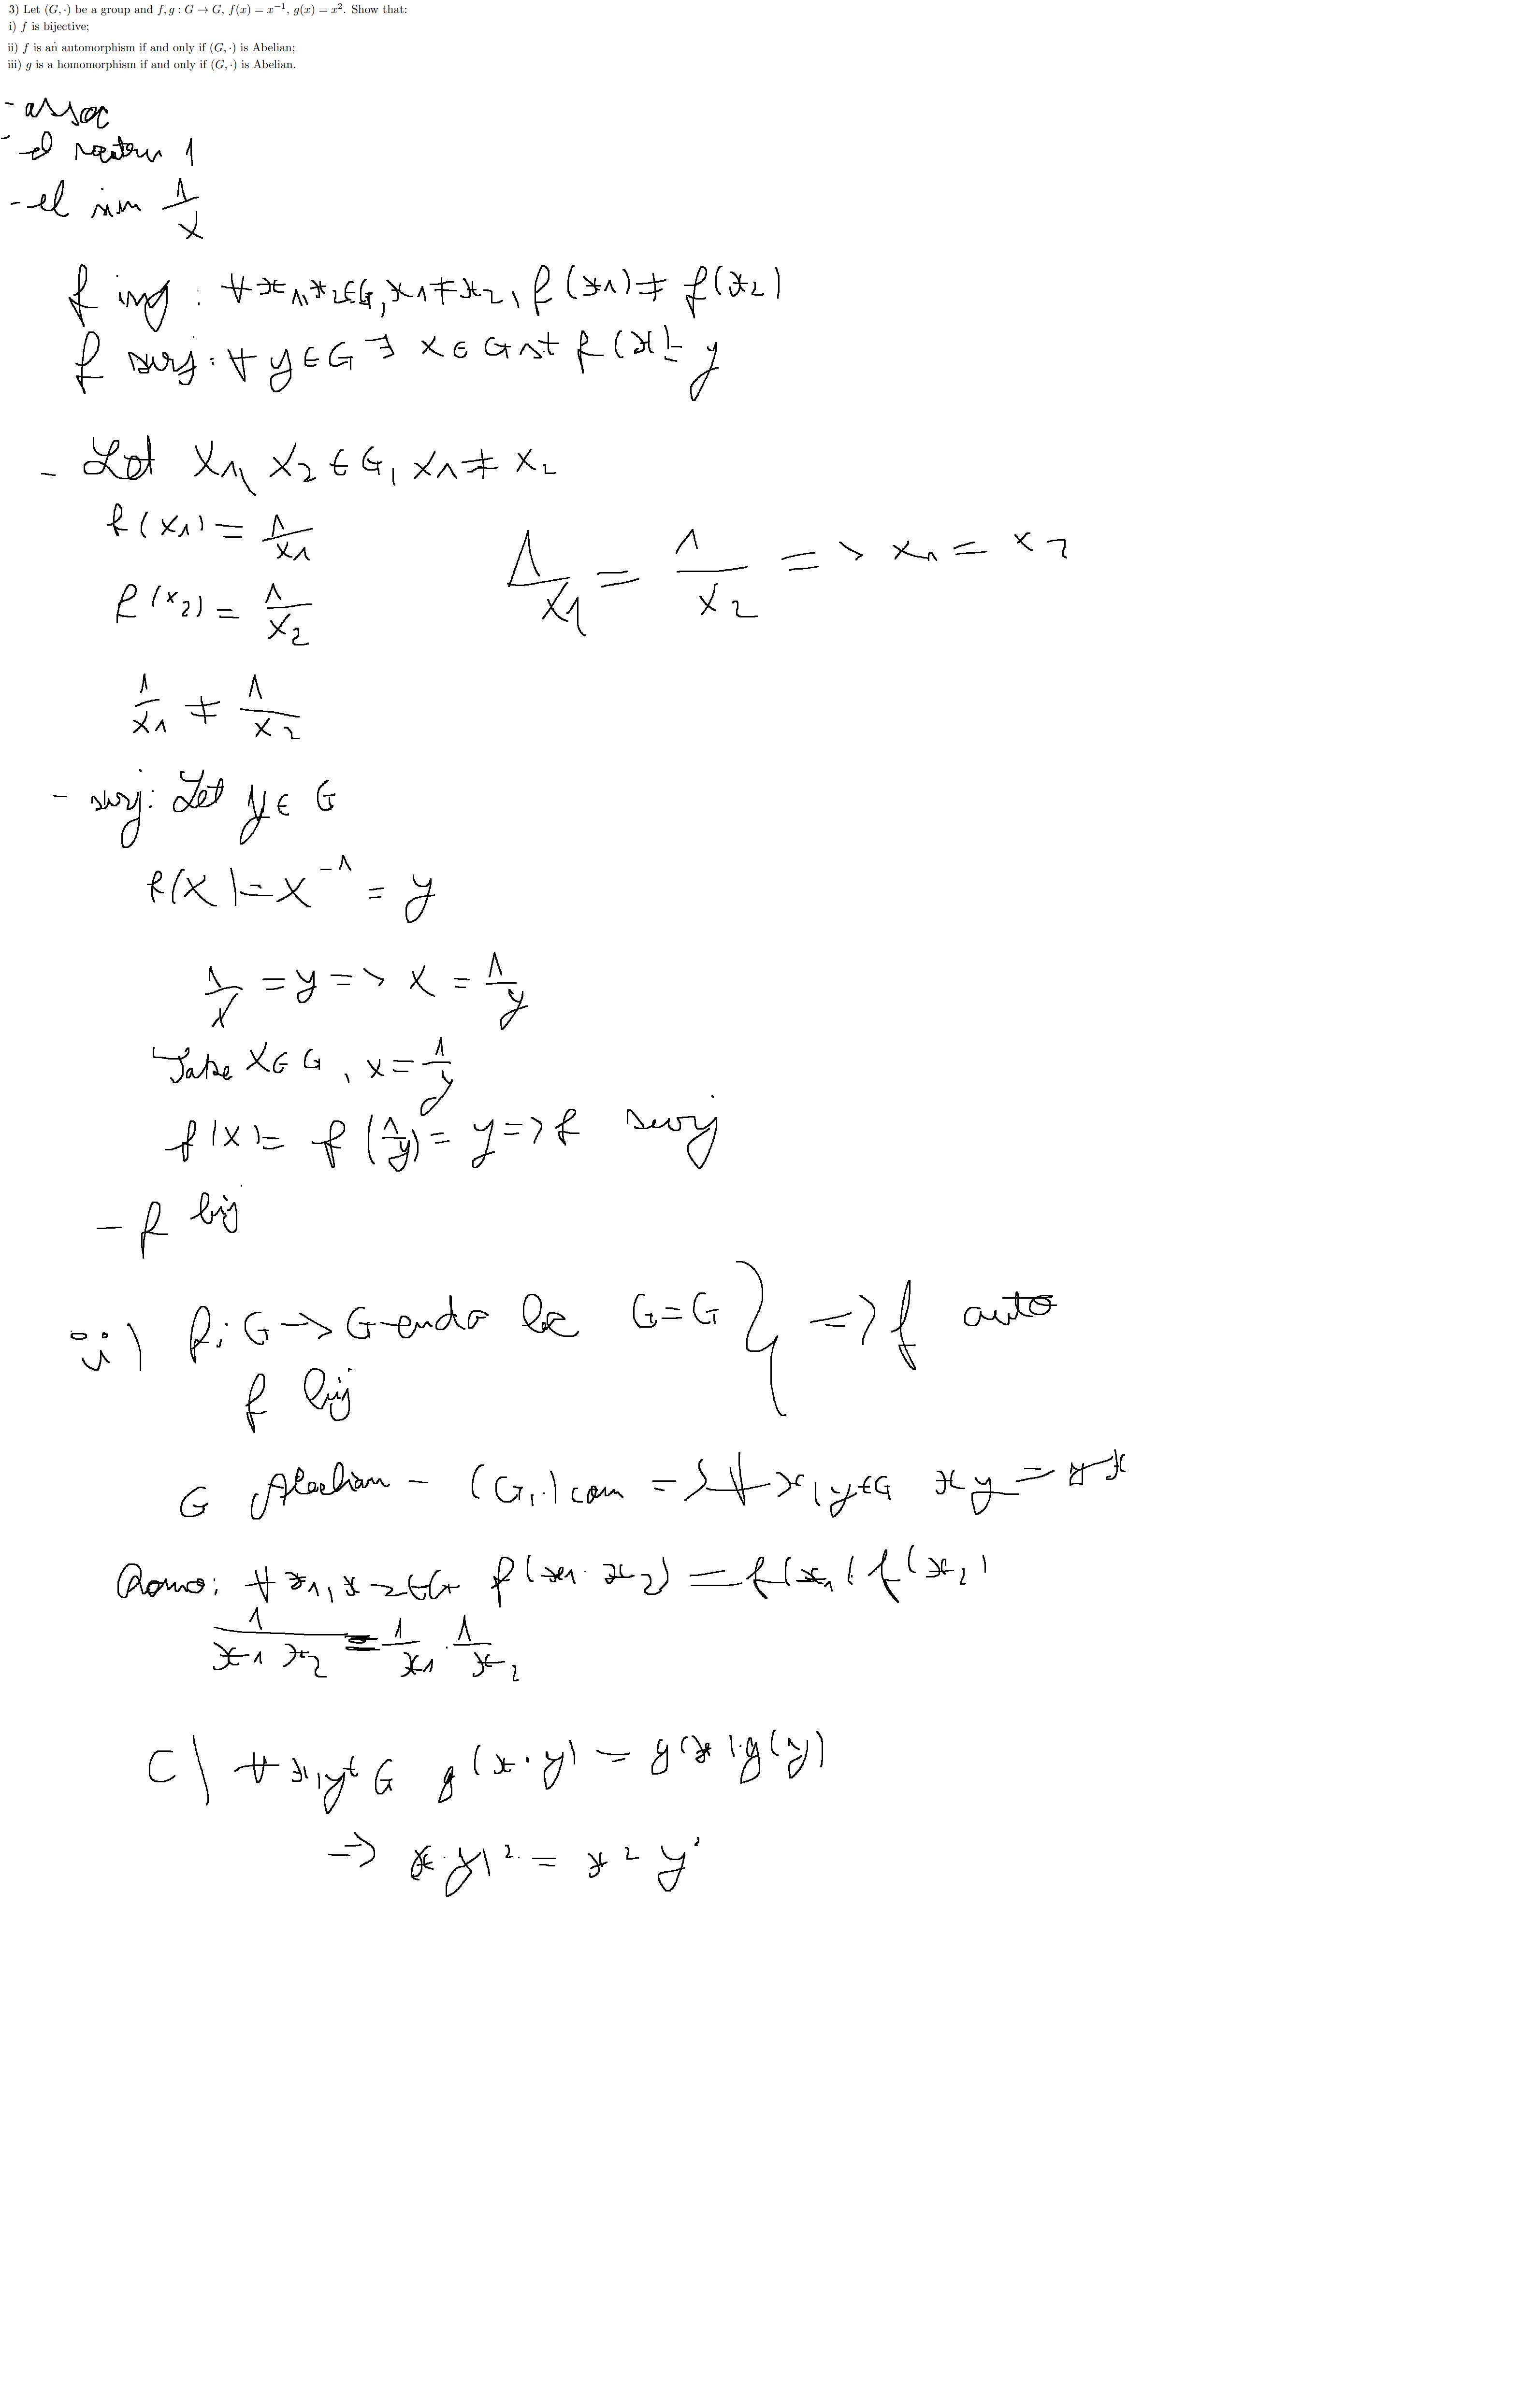 3) Let (G, ·) be a group and f, g : G → G, f(x) = x⁻¹, g(x) = x². Show that:
i) f is bijective;
ii) f is an automorphism if and only if (G, ·) is Abelian;
iii) g is a homomorphism if and only if (G, ·) is Abelian.
- assoc
- el 1
- el sim 1/x
f inj : ∀ x1, x2 ∈ G, x1 ≠ x2, f(x1) ≠ f(x2)
f surj : ∀ y ∈ G ∃ x ∈ G st f(x) = y
- Let x1, x2 ∈ G, x1 ≠ x2
f(x1) = 1/x1
1/x1 = 1/x2 => x1 = x2
f(x2) = 1/x2
1/x1 ≠ 1/x2
- surj: Let y ∈ G
f(x) = x⁻¹ = y
1/x = y => x = 1/y
Take x ∈ G, x = 1/y
f(x) = f(1/y) = y => f surj
- f bij
ii) f: G -> G - endo bc G = G } => f auto
f bij
G Abelian - (G, ·) com => ∀ x, y ∈ G xy = yx
homo: ∀ x1, x2 ∈ G f(x1 · x2) = f(x1) · f(x2)
1/(x1 x2) = 1/x1 · 1/x2
C) ∀ x, y ∈ G g(x · y) = g(x) · g(y)
=> (x·y)² = x² y²